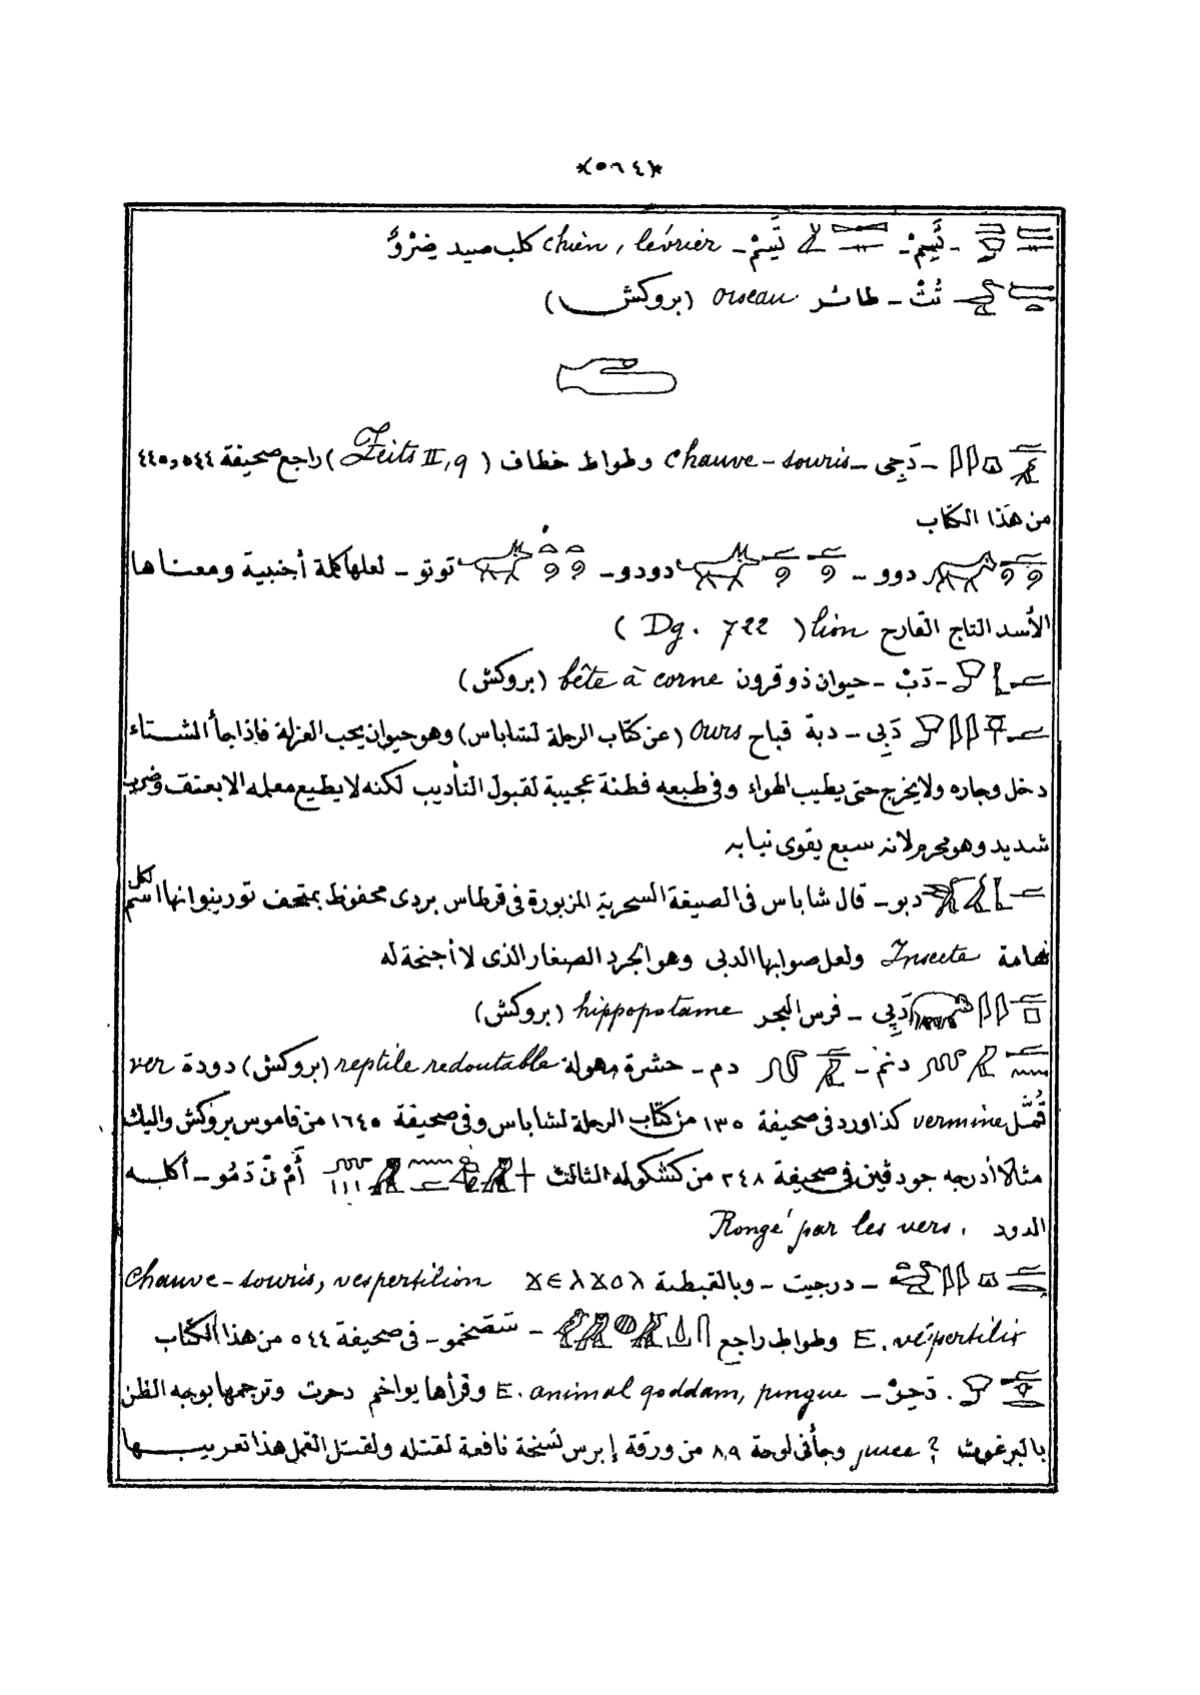 *(٥٦٤)*
ـ تَسِمْ ـ تَسِمْ ـ chien, lévrier كلب صيد ضِرْوٌ
تُثْ ـ طائر oiseau (بروكش)
ـ دَجِى ـ chauve-souris وطواط خطاف (Zeits II, 9) راجع صحيفة ٥٤٤ و ٤٤٥
من هذا الكتاب
دوو ـ دودو ـ توتو ـ لعلها كلمة أجنبية ومعناها
الأسد التاج القارح lion (Dg. 722)
ـ دَبْ ـ حيوان ذو قرون bête à corne (بروكش)
دَبِى ـ دبة قباح ours (عن كتاب الرحلة لشاباس) وهو حيوان يحب العزلة فاذا جأ الشتاء
دخل وجاره ولا يخرج حتى يطيب الهواء وفى طبعه فطنة عجيبة لقبول التأديب لكنه لا يطيع معلمه الا بعنف وضرب
شديد وهو محرم لانه سبع يقوى نيابه
دبو ـ قال شاباس فى الصيغة السحرية المزبورة فى قرطاس بردى محفوظ بمتحف تورينو انها اسم لكل
هامة Insecte ولعل صوابها الدبى وهو الجرد الصغار الذى لا أجنحة له
دَبِى ـ فرس البحر hippopotame (بروكش)
دنم ـ دم ـ حشرة مهولة reptile redoutable (بروكش) دودة ver
قُمَّل vermine كذا ورد فى صحيفة ١٣٥ من كتاب الرحلة لشاباس وفى صحيفة ١٦٤٥ من قاموس بروكش واليك
مثالا أدرجه جودڤين فى صحيفة ٢٤٨ من كشكوله الثالث أَمْ نّ دَمُو ـ أكله
الدود Rongé par les vers.
ـ درجيت ـ وبالقبطية ϫⲉⲗϫⲟⲗ chauve-souris, vespertilion
E. vespertilis وطواط راجع ـ فى صحيفة ٥٤٤ من هذا الكتاب
E. animal quoddam, pingue ـ وقرأها يواخم دحرت وترجمها بوجه الظن
بالبرغوث puce ? وجأ فى لوحة ٨٩ من ورقة إبرس نسخة نافعة لقتله ولقتل القمل هذا تعريبها